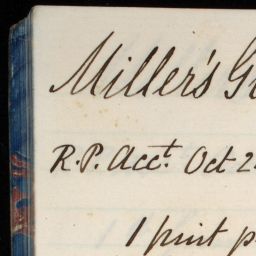 Miller's G
R.P. Acct. Oct 2
1 pint p